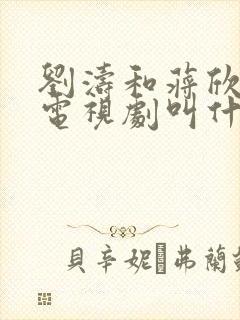 劉濤和蔣欣
電視劇叫什
貝辛妮·弗蘭